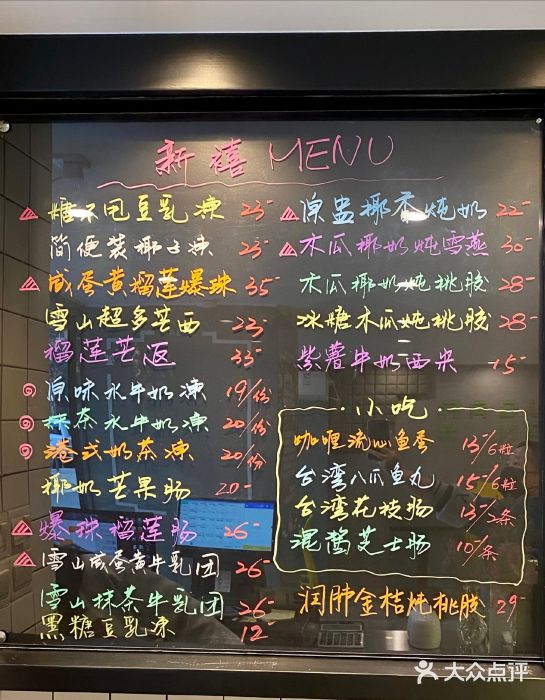 新禧 MENU
糖不甩豆乳凍 23-
简便装椰子凍 23-
咸蛋黄榴莲爆珠 35-
雪山超多芒西 23-
榴莲芒返 33-
原味水牛奶凍 19/份
抹茶水牛奶凍 20/份
港式奶茶凍 20/份
椰奶芒果肠 20-
爆珠榴莲肠 26-
雪山咸蛋黄牛乳团 26-
雪山抹茶牛乳团 26-
黑糖豆乳凍 12-
原盅椰香炖奶 22-
木瓜椰奶炖雪燕 30-
木瓜椰奶炖桃胶 28-
冰糖木瓜炖桃胶 28-
紫薯牛奶西米 15-
·小吃·
咖喱流心鱼蛋 13-/6粒
台湾八爪鱼丸 15-/6粒
台湾花枝肠 13-/2条
混酱芝士肠 10-/条
润肺金桔炖桃胶 29-
大众点评